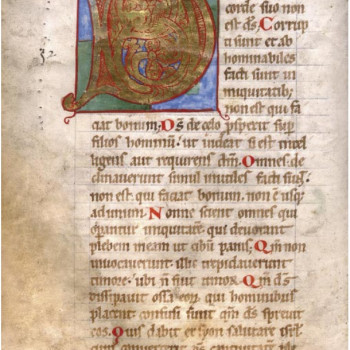 corde suo non
est d̄s. Corrup
ti sunt et ab
hominabiles
facti sunt in
iniquitatib;
non est qui fa
ciat bonum. D̄s de celo ꝓspexit sup
filios hominū. ut videat si est intell
ligens aut requirens dm̄. Omnes de
clinaverunt simul inutiles facti sūt.
non est qui faciat bonum. non ē usq;
ad unum. Nonne scient omnes qui
opantur iniquitatē. qui devorant
plebem meam ut cibū panis. Qm̄ non
invocaverunt. illic trepidaverunt
timore. ubi n̄ fuit timor. Qm̄ d̄s
dissipavit ossa eorꝫ qui hominibus
placent confusi sunt qm̄ d̄s spreuit
eos. Quis dabit ex syon salutare isrl̄
cum converterit